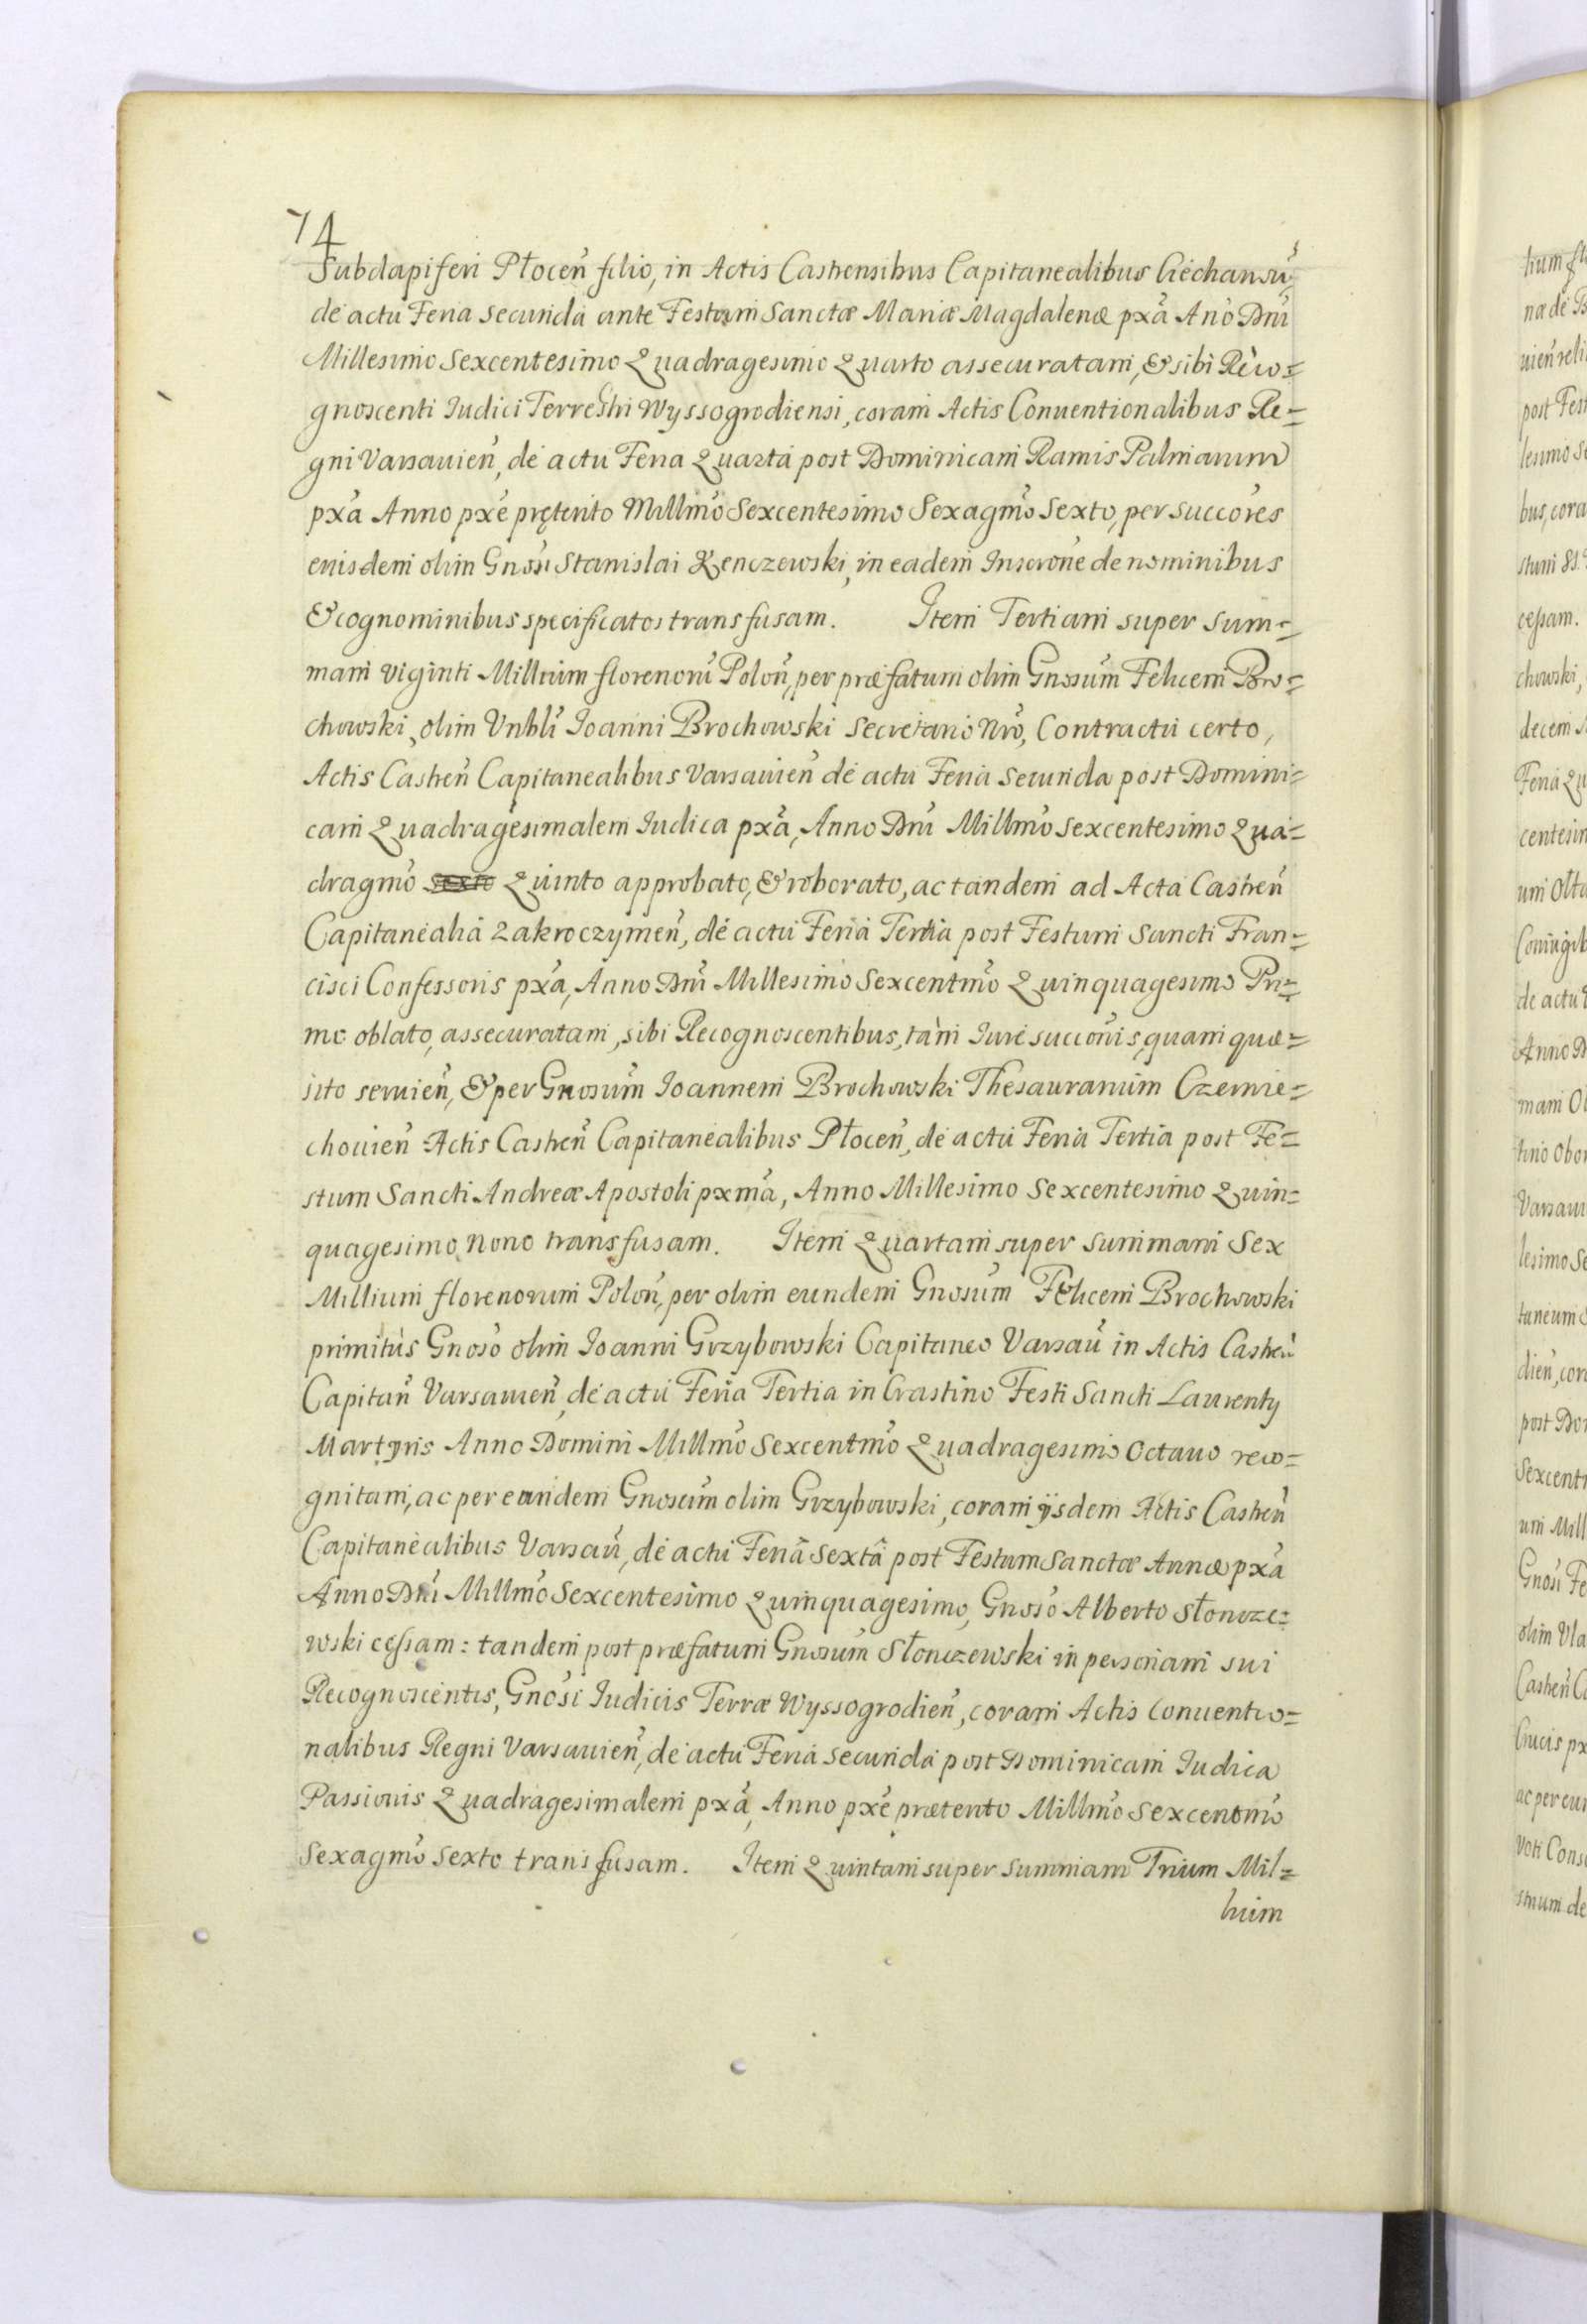 74
Subdapiferi Płoceń filio, in Actis Castrensibus Capitanealibus Ciechansiĩ,
de actu Feria secunda ante Festum Sanctæ Mariæ Magdalenæ pxã Anõ Dnĩ
Millesimo Sexcentesimo Quadragesimo Quarto assecuratam, & sibi Reco=
gnoscenti Iudici Terrestri Wyssogrodiensi, coram Actis Conuentionalibus Re=
gni Varsauień, de actu Feria Quarta post Dominicam Ramis Palmarum
pxã Anno pxẽ pręterito Millmõ Sexcentesimo Sexagmõ Sexto, per succõres
eiusdem olim Gnosĩ Stanislai Kenczewski, in eadem Inscrõne de nominibus
& cognominibus specificatos transfusam. Item Tertiam super Sum=
mam viginti Millium florenorũ Poloń, per præfatum olim Gnosũm Felicem Bro=
chowski, olim Vnblĩ Ioanni Brochowski Secretario Nrõ, Contractu certo,
Actis Castreń Capitanealibus Varsauień de actu Feria Secunda post Domini=
cam Quadragesimalem Iudica pxã, Anno Dnĩ Millmõ Sexcentesimo Qua=
dragmõ sexto Quinto approbato, & roborato, ac tandem ad Acta Castreń
Capitanealia Zakroczymeń, de actu Feria Tertia post Festum Sancti Fran=
cisci Confessoris pxã, Anno Dnĩ Millesimo Sexcentmõ Quinquagesimo Pri=
mo oblato, assecuratam, sibi Recognoscentibus, tàm Iure succõnis, quam quæ=
sito seruień, & per Gnosũm Ioannem Brochowski Thesaurarium Czernie=
chouień Actis Castreń Capitanealibus Płoceń, de actu Feria Tertia post Fe=
stum Sancti Andreæ Apostoli pxmã, Anno Millesimo Sexcentesimo Quin=
quagesimo Nono transfusam. Item Quartam super Summam Sex
Millium florenorum Poloń, per olim eundem Gnosũm Felicem Brochowski
primitùs Gnosõ olim Ioanni Grzybowski Capitaneo Varsaũ in Actis Castreń
Capitań Varsauień, de actu Feria Tertia in Crastino Festi Sancti Laurentÿ
Martyris Anno Domini Millmõ Sexcentmõ Quadragesimo Octauo reco=
gnitam, ac per eundem Gnosũm olim Grzybowski, coram ÿsdem Actis Castreń
Capitanealibus Varsaũ, de actu Feriâ Sextâ post Festum Sanctæ Annæ pxã
Anno Dnĩ Millmõ Sexcentesimo Quinquagesimo, Gnosõ Alberto Słoncze=
wski ceßam: tandem post præfatum Gnosũm Słonczewski in personam sui
Recognoscentis, Gnosĩ Iudicis Terræ Wyssogrodień, coram Actis Conuentio=
nalibus Regni Varsauień, de actu Feria Secunda post Dominicam Iudica
Passionis Quadragesimalem pxã, Anno pxẽ præterito Millmõ Sexcentmõ
Sexagmõ Sexto transfusam. Item Quintam super Summam Trium Mil=
lium